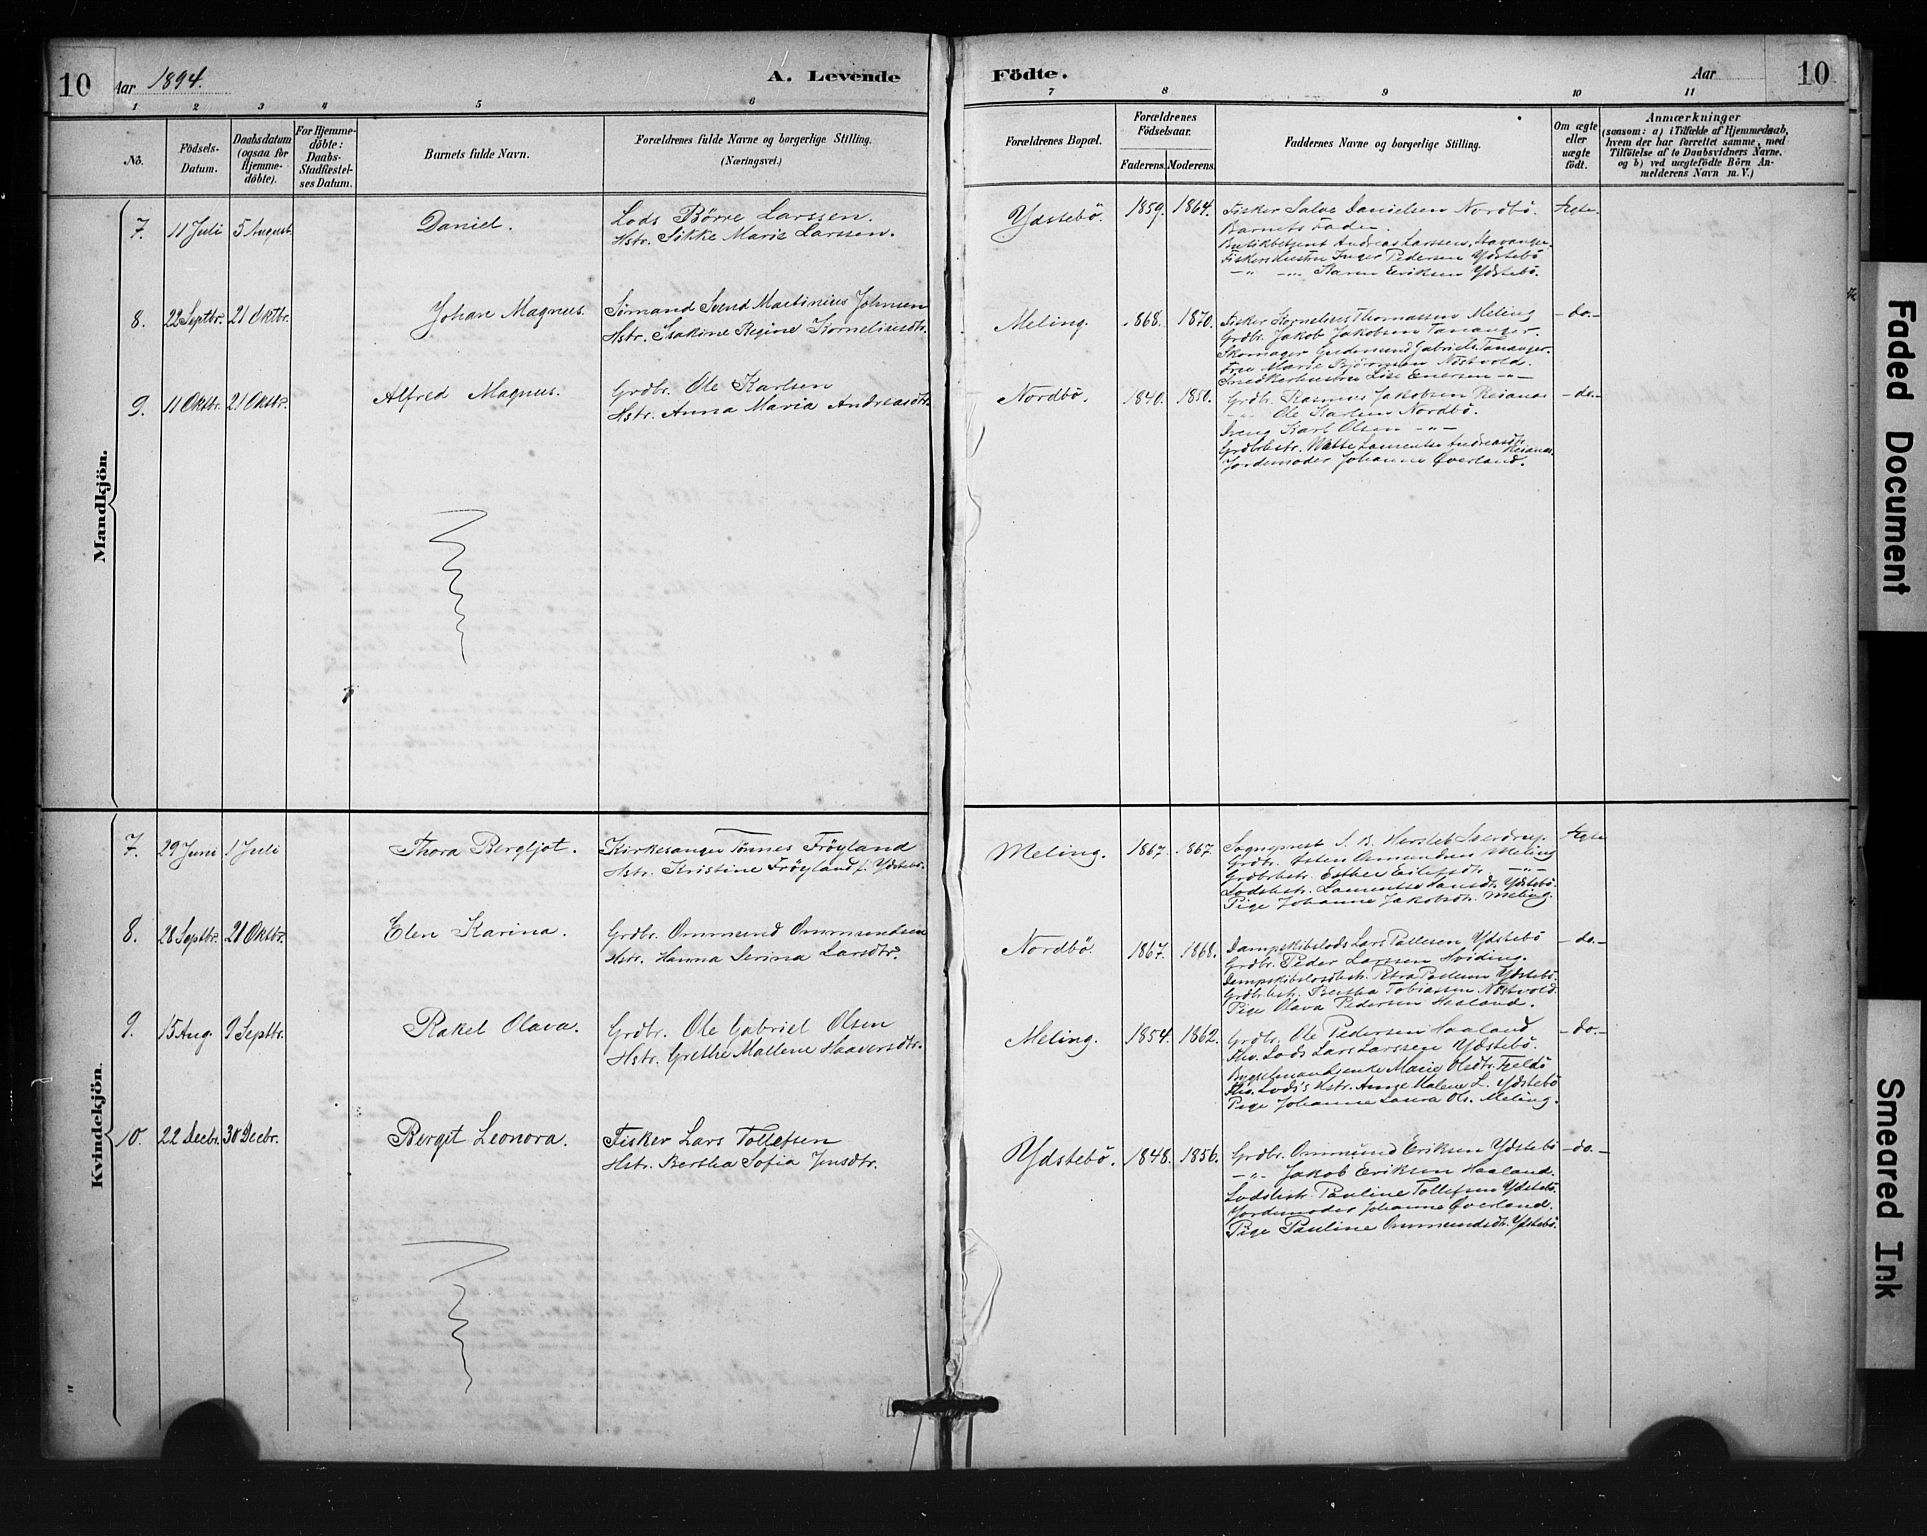 10
Aar 1894.
A. Levende
Födte.
Aar
10
1
2
3
4
5
6
7
8
9
10
11
No.
Födsels-Datum.
Daabsdatum (ogsaa for Hjemme-döbte).
For Hjemme-döbte: Daabs-Stadfæstel-ses Datum.
Barnets fulde Navn.
Forældrenes fulde Navne og borgerlige Stilling.
(Næringsvei.)
Forældrenes Bopæl.
Forældrenes Födselsaar.
Faderens.
Moderens.
Faddernes Navne og borgerlige Stilling.
Om ægte eller uægte født.
Anmærkninger
(saasom: a) i Tilfælde af Hjemmedaab,
hvem der har forrettet samme, med
Tilföielse af to Daabsvidners Navne.
og b) ved uægtefödte Börn An-
melderens Navn m. V.)
Mandkjön.
7.
11 Juli
5 August
Daniel.
Lods Børre Larssen.
Hstr. Sikke Marie Larssen.
Ydstebö.
1859.
1864.
Fisker Salve Danielsen Nordbö.
Barnets Fader.
Butikbetjent Andreas Larssen, Stavanger.
Fiskershustru Inger Pedersen Ydstebö
-"- -"- Karen Eriksen Ydstebö.
Ægte.
8.
22 Septbr.
21 Oktbr.
Johan Magnus.
Sömand Svend Martinius Johnsen
Hstr. Isakine Regine Korneliusdtr.
Meling.
1868.
1870.
Fisker Kornelius Thomassen Meling
Grdbr. Jakob Jakobsen Tananger.
Skomager Gudmund Gabriels. Tananger.
Fru Marie Bjørnsen Nöstvold.
Snedkerhustru Lise Enersen -"-
-do.-
9.
11 Oktbr.
21 Oktbr.
Alfred Magnus.
Grdbr. Ole Karlsen
Hstr. Anna Maria Andreasdtr.
Nordbö.
1840.
1850.
Grdbr. Rasmus Jakobsen Reianæs
-"- Ole Karlsen Nordbö.
Dreng Karl Olsen -"-
Grdbrhstr. Laurentse Andreasdtr. Reianæs.
Jordemoder Johanne Øverland.
-do.-
Kvindekjön.
7.
29 Juni
1 Juli
Thora Bergljot.
Kirkesanger Tönnes Fröyland
Hstr. Kristine Fröyland f. Ydstebö.
Meling.
1867.
1867.
Sogneprest J. B. Hersleb Sverdrup.
Grdbr. Osmundsen Meling
Grdbrhstr. Esther Eilefsdtr. -"-
Lodshstr. Laurentse Hansdtr. Ydstebö.
Pige Johanne Jakobsdtr. Meling.
Ægte
8.
28 Septbr.
21 Oktbr.
Elen Karina.
Grdbr. Ommund Ommundsen
Hstr. Hanna Serina Larsdtr.
Nordbö.
1867.
1868.
Dampskibslods Lars Pallesen Ydstebö
Grdbr. Peder Larssen Hviding.
Dampskibslodshstr. Petra Pallesen Ydstebö.
Grdbrhstr. Bertha Tobiassen Nöstvold.
Pige Olava Pedersen Haaland.
-do.-
9.
15 Aug.
9 Septbr.
Rakel Olava.
Grdbr. Ole Gabriel Olsen
Hstr. Grethe Mallene Haaversdtr.
Meling.
1854.
1862.
Grdbr. Ole Pedersen Haaland
Lods Lars Larssen Ydstebö.
Bygselmandsenke Marie Olsdtr. Fjeldö
Lods's Hstr. Malene L. Ydstebö
Pige Johanne Laura Ols. Meling.
-do.-
10.
22 Decbr.
30 Decbr.
Berget Leonora.
Fisker Lars Tollefsen
Hstr. Bertha Sofia Jensdtr.
Ydstebö.
1848.
1856.
Grdbr. Ommund Eriksen Ydstebö
-"- Jakob Eriksen Haaland.
Lodshstr. Pauline Tollefsen Ydstebö.
Jordemoder Johanne Øverland.
Pige Pauline Ommundsdtr. Ydstebö.
-do.-
Faded Document
Smeared Ink